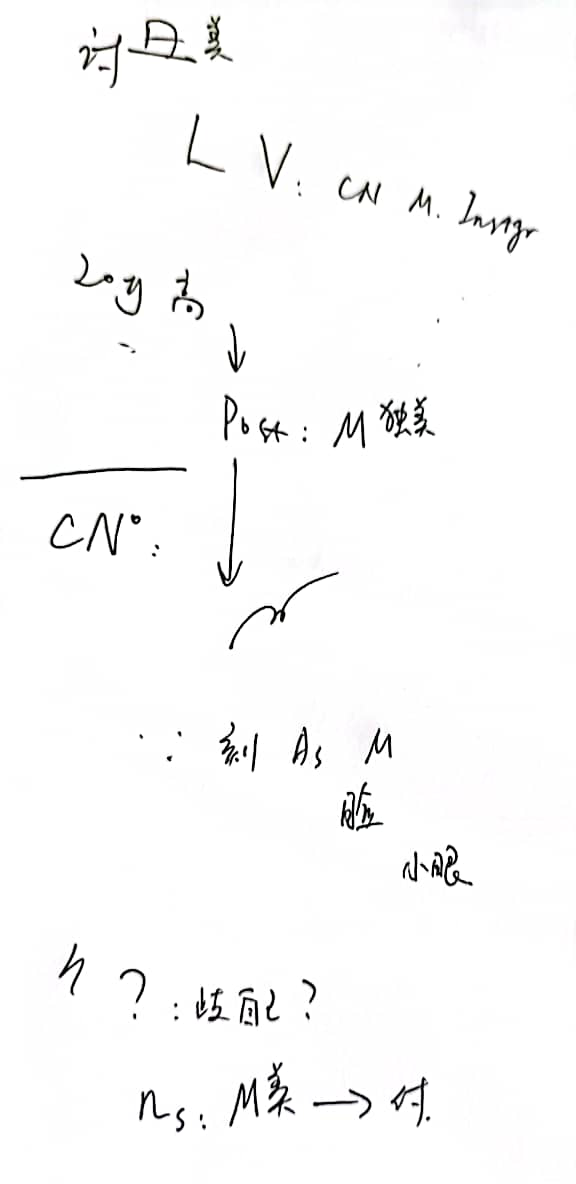 讨丑美
L V: CN M. Instgr
20y 高
Post: M 独美
CN°:
∵ 刻 As M
脸
小眼
? : 歧配?
ns: M美 → 付.